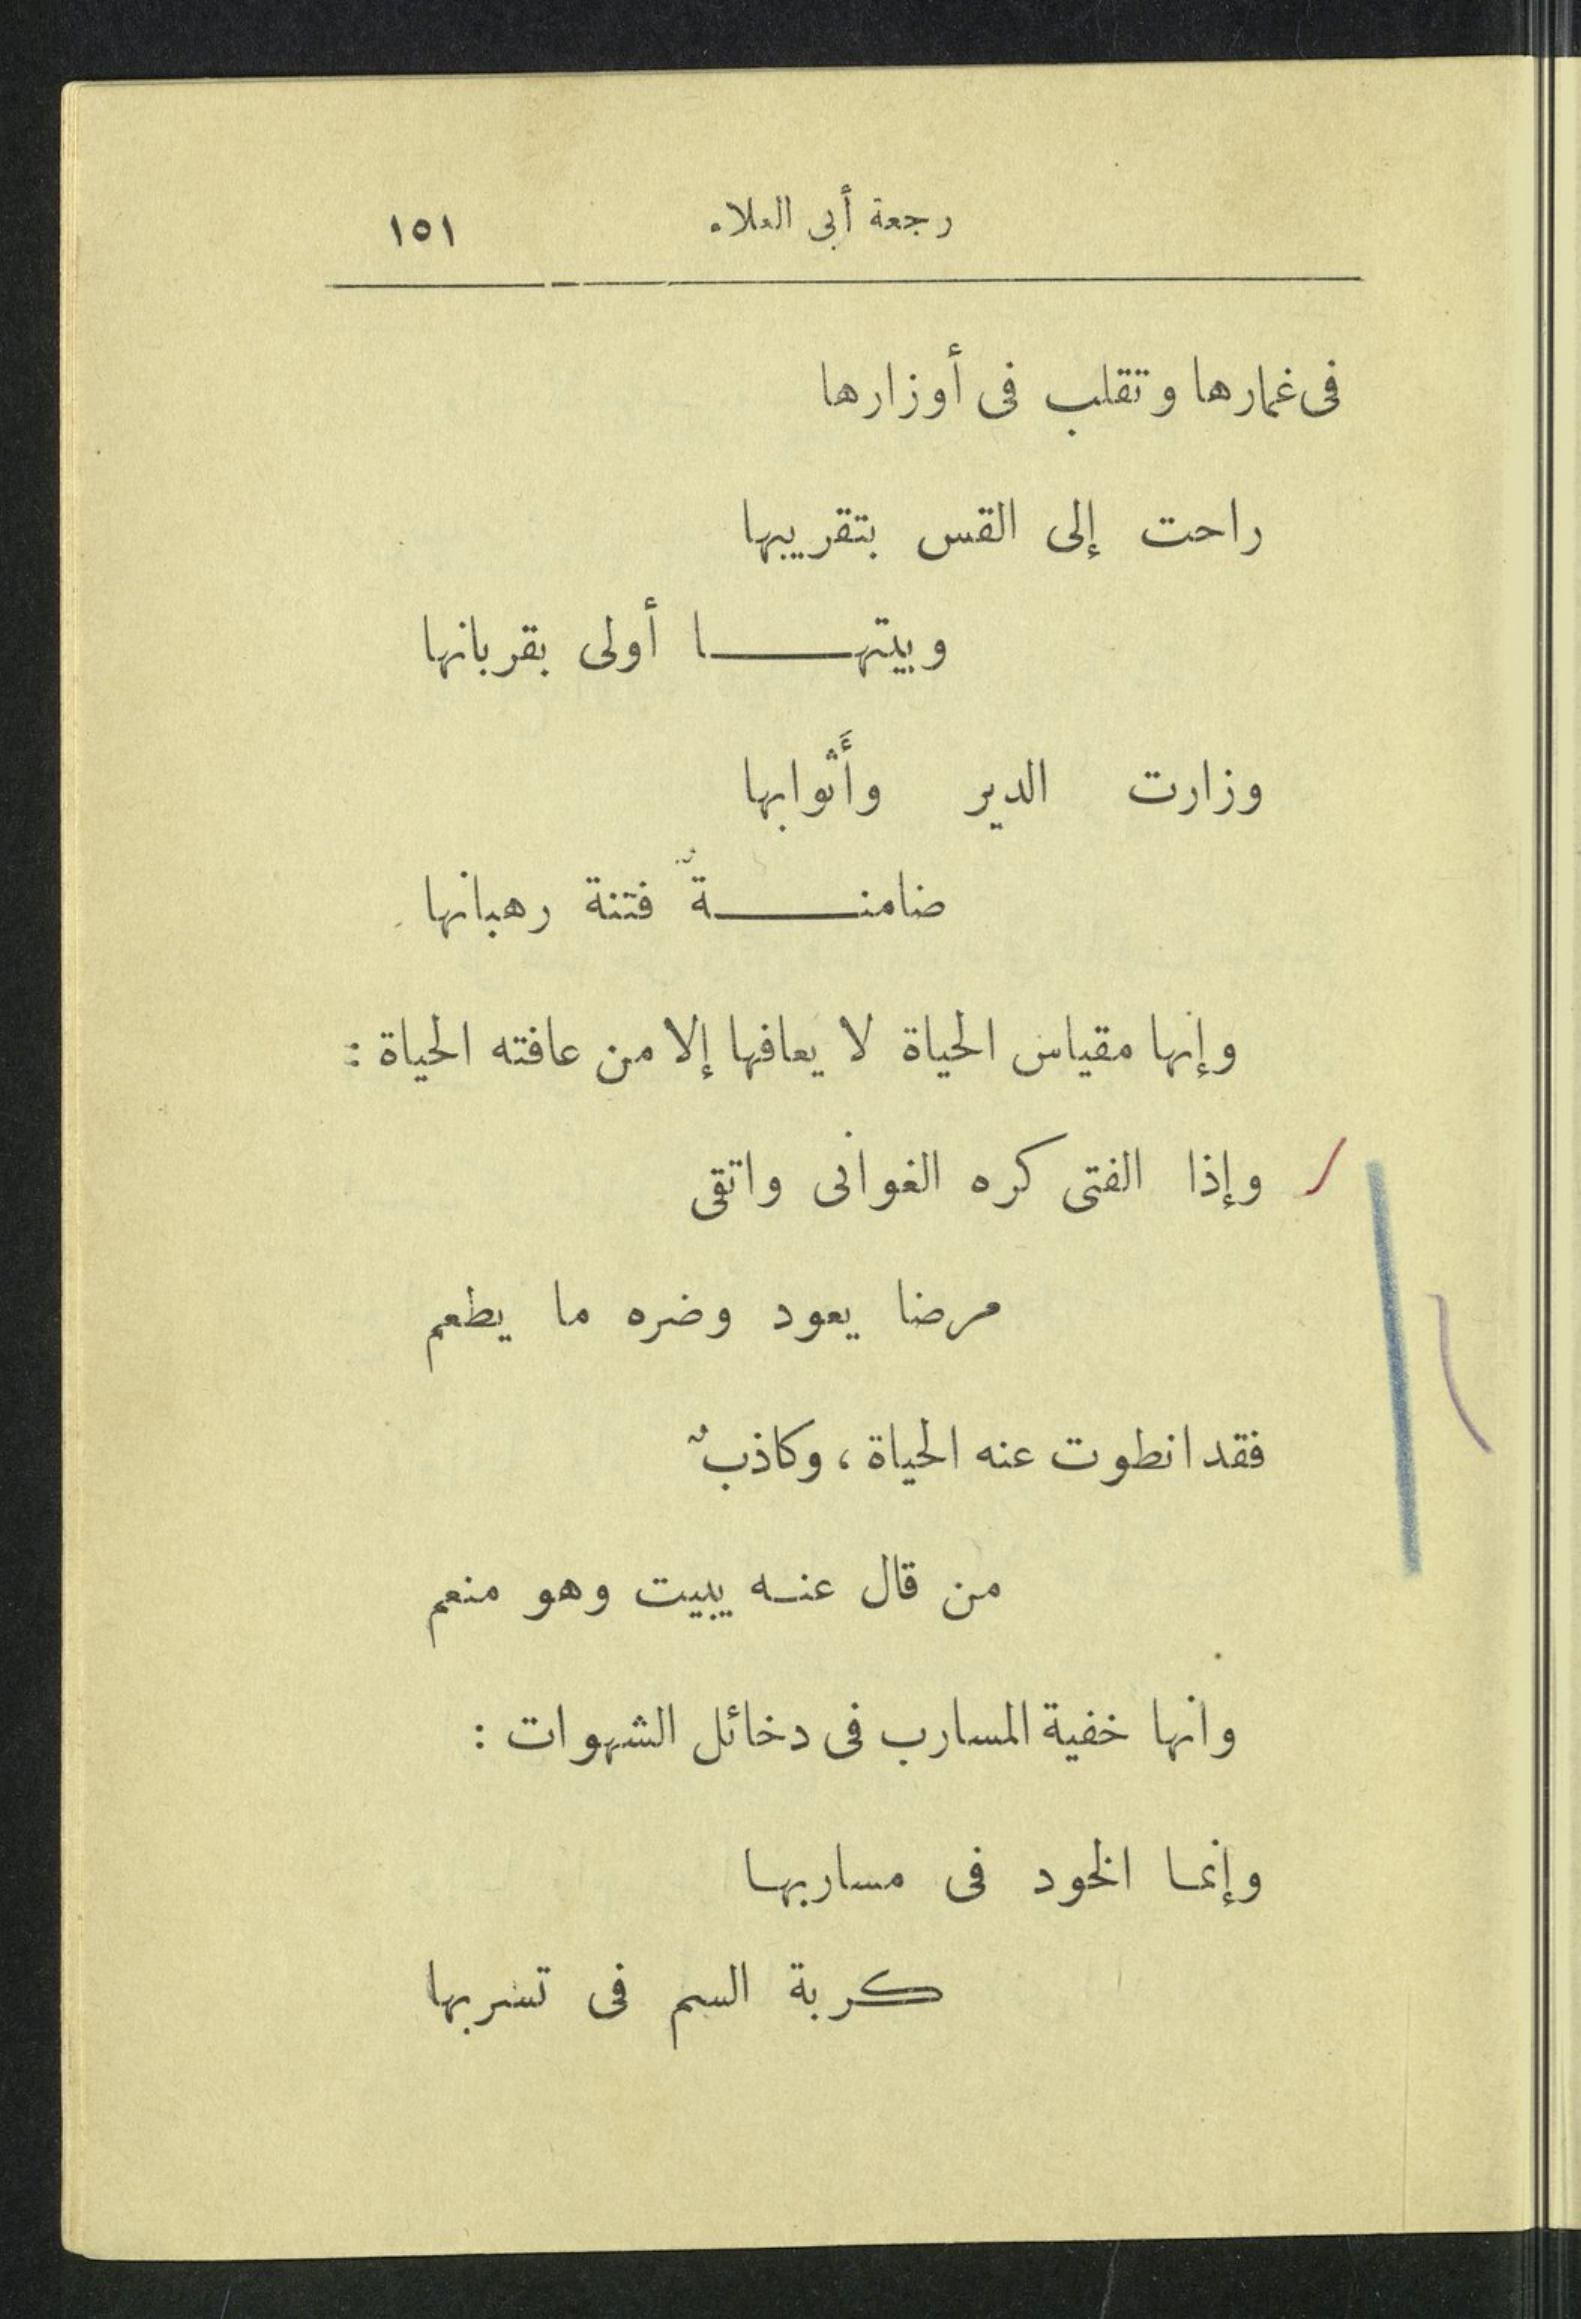 رجعة أبى العلاء ١٥١
فى غمارها وتقلب فى أوزارها
راحت إلى القس بتقريبها
وبيتهـــا أولى بقربانها
وزارت الدير وأَثوابها
ضامنـــةٌ فتنة رهبانها
وإنها مقياس الحياة لا يعافها إلا من عافته الحياة :
وإذا الفتى كره الغوانى واتقى
مرضا يعود وضره ما يطعم
فقد انطوت عنه الحياة ، وكاذبٌ
من قال عنه يبيت وهو منعم
وانها خفية المسارب فى دخائل الشهوات :
وإنما الخود فى مساربها
كربة السم فى تسربها